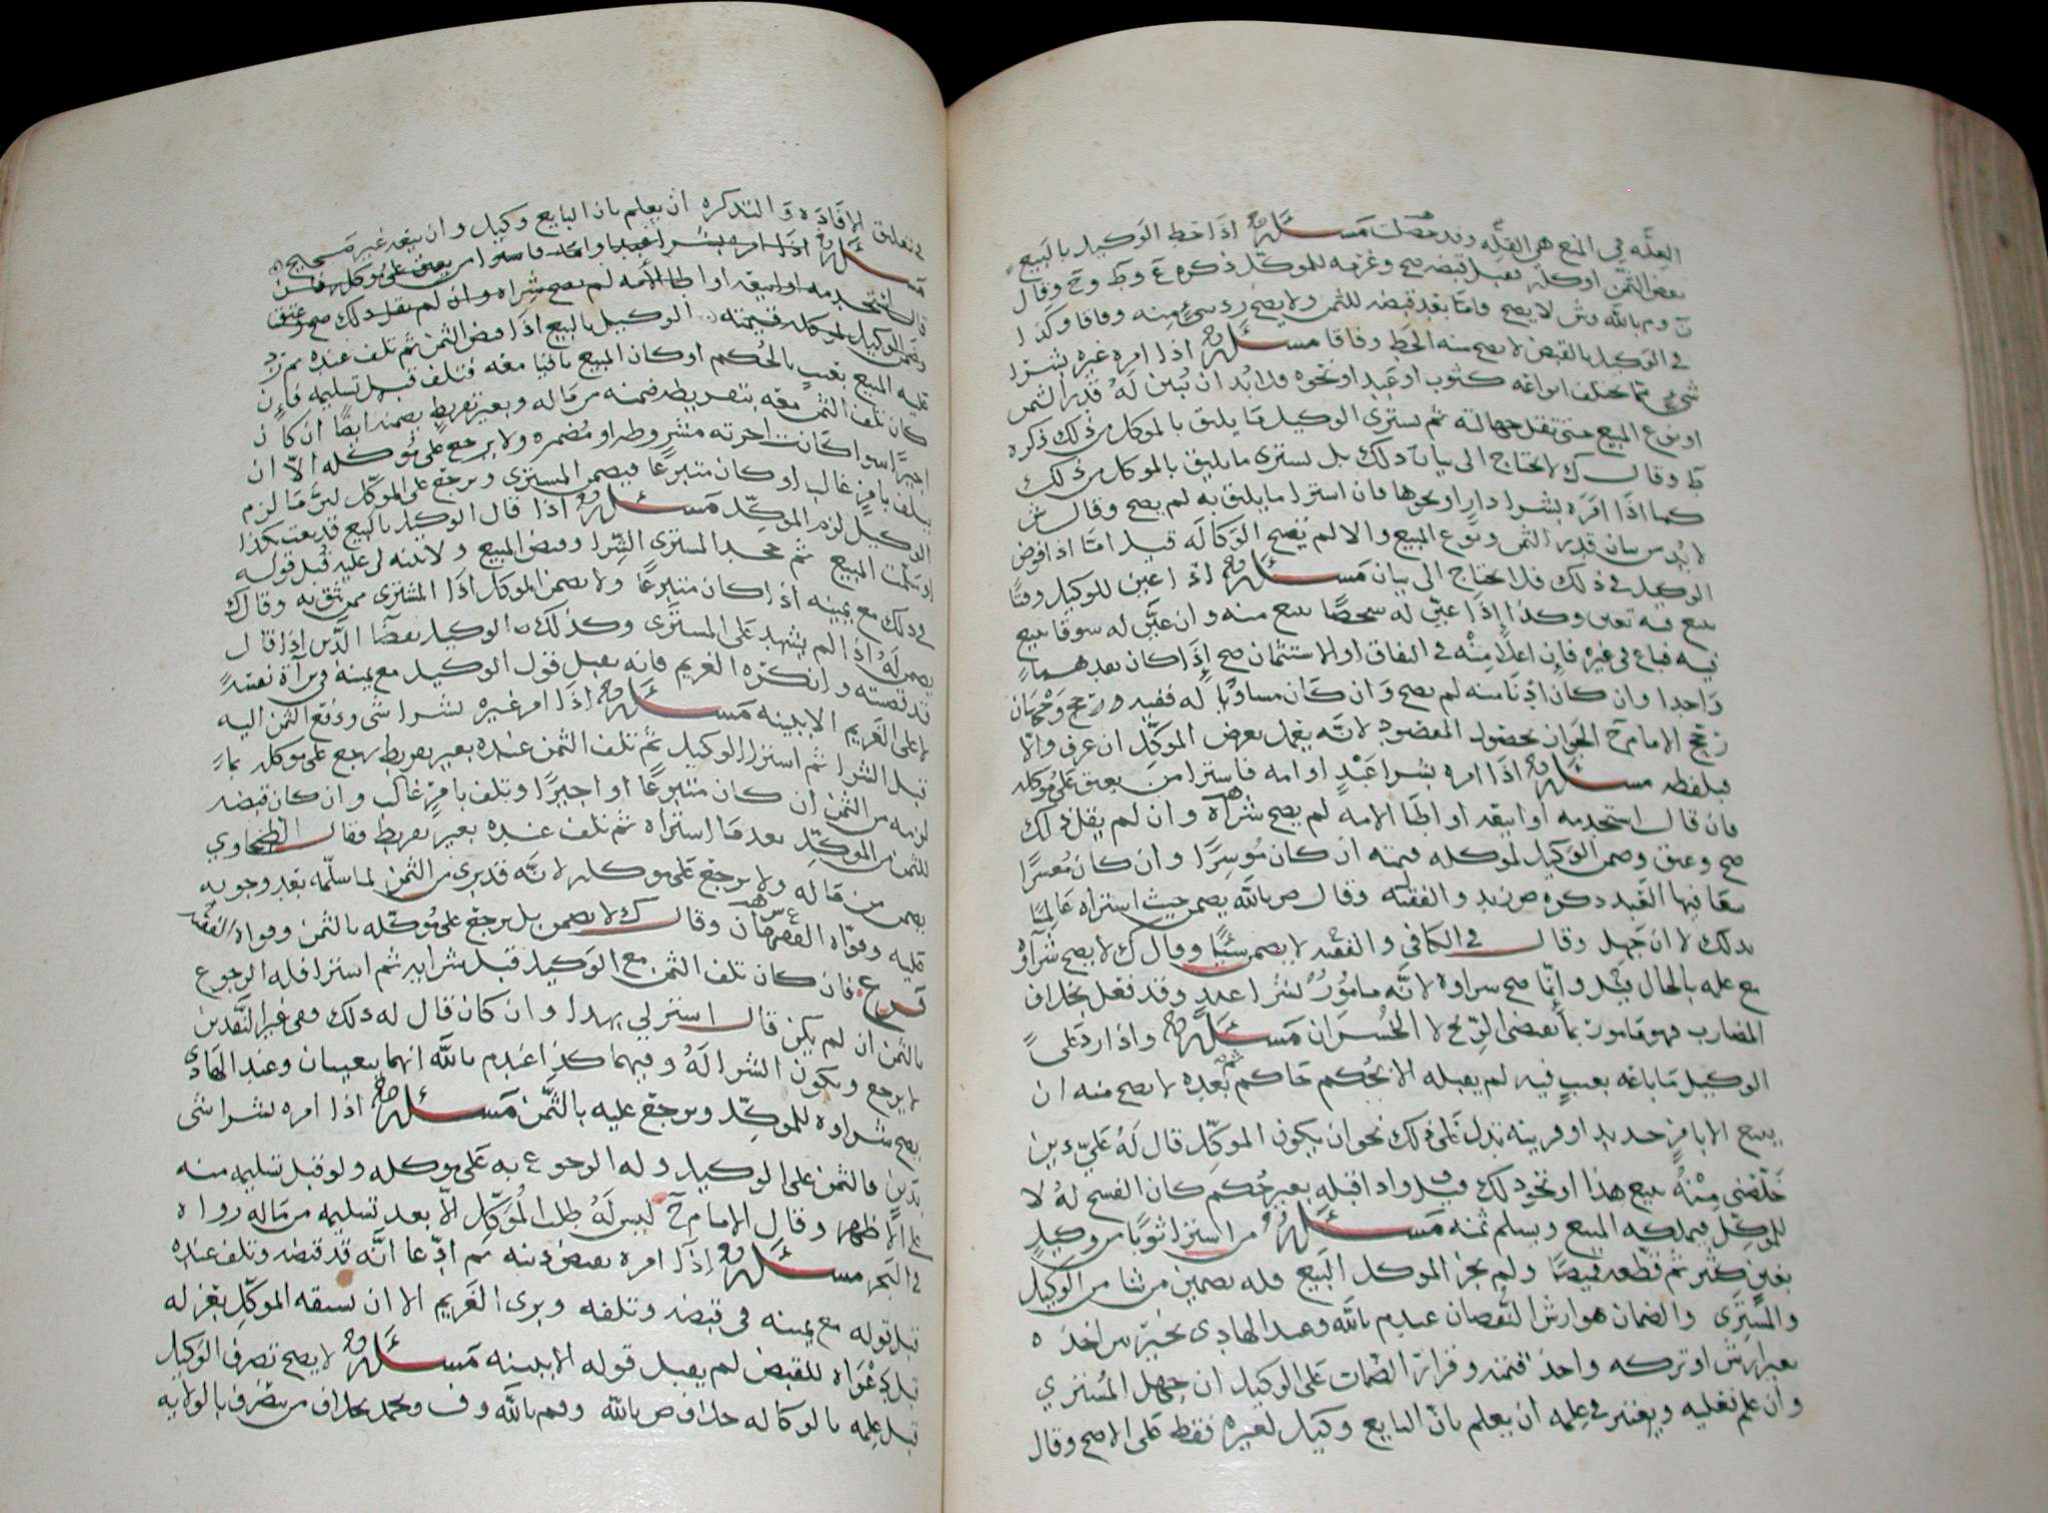 العِلّه في المنع هي القِلّه وقد حصلت مَسئلة اذَا حَط الوَكيل بالبَيع
بعض الثمن او كله قبل قبضه صح وغرمه للموكّل ذكره ع وط وح وقال
ن وم بالله وش لا يصح وامّا بعد قبضه للثمن ولا يصح رد شيءٍ منه وفاقا وكذا
في الوكيل بالقبض لا يصح منه الحَط وفاقا مسئلة اذا امره غيره بشرا
شيءٍ ممّا يختلف انواعه كثوب او عَبدٍ او نحوه فلا بُد ان يُبين لَهُ قدر الثمن
او نوع المبيع حتى تقل جهالته ثم يشترى الوكيل مَا يليق بالموكل من ذلك ذكره
ط وقال ك لا يحتاج الى بيان ذلك بل يشترى ما يليق بالموكل من ذلك
كما اذَا امَره بشرا دارٍ او نحوها فان اشترا ما يليق به لم يصح وقال ش
لا بُد من بيان قدر الثمن ونوع المبيع والا لم تصح الوَكاله قيل امّا اذا فوض
الوكيل في ذلك فلا يحتاج الى بيان مَسئلة اذا عين للوكيل وقتًا
يبيع فيه تعين وكذا اذَا عيّن له شخصًا يبيع منه وان عيَّن له سوقا يبيع
فيه فباع في غيره فان اعلا مِنْه في النفاق او الاستثمان صح اذَا كان بعد هما
وَاحدا وان كان ادنَا منه لم يصح وَان كَان مساويًا له ففيه
رجّح الامام ح الجَواز بحصول المقصود لانَّه يعمل بعرض الموكّل ان عرف والّا
فبلفظه مسئلة اذَا امره بشرا عَبْدٍ او امه فاشترا من يعتق عَلى موكله
فان قال استخدمه او ابيعه او اطَا الامه لم يصح شراه وان لم يقل ذلك
صح وعتق وضمن الوَكيل لموكله قيمته ان كان مُوسِرًا وان كان مُعسرًا
سَعا فيها العَبد ذكره ض زيد والفقيه وقال ص بالله يضمن حيث اشتراه عَالمًا
بذلك لا ان جَهِل وقال في الكافي والفقيه لا يضمن شيئًا وقال ك لا يصح شرآؤه
مع علمه بالحال قيل وانّما صح شراوه لانَّه مامُورٌ بشرا عبدٍ وقد فعل بخلاف
المضارب فهو مَامورٌ بما يقضى الرّبح لا الخُسران مَسئلة واذا رد على
الوكيل مَا باعَه بعيبٍ فيه لم يقبله الا بحُكم حَاكم ثم بَعده لا يصح منه ان
يبيع الا بامرٍ جديدٍ او قرينه تدل عَلى ذلك نحو ان يكون الموكِّل قال لَهُ عَليّ دين
خَلّصني مِنْهُ ببيع هذا او نحو ذلك قيل واذا قبله بغير حُكم كان الفسخ لهُ لا
للموكِّل فيملكه المبيع ويسلم ثمنه مَسئلة من اشترا ثوبًا من وكيلٍ
بغبنٍ كثيرٍ ثم قطّعه قميصًا ولم يجز الموكل البَيع فله تضمين من شا من الوكيل
والمشتَرى والضمان هو ارش النُّقصان عند م بالله وعند الهادي يخيّر بين اخذه
بغير ارش او تركه واخذ قيمته وقرار الضّمان عَلى الوكيل ان جهل المُشتري
وان علم فعليه ويعتبر في عِلمه ان يعلم بان البايع وكيل لغيره فقط عَلى الاصح وقال
في تعليق الافَادَه وَالتذكره ان يعلم بان البايع وكيل وان بيعه غير صَحيح
مَسئلة اذا امره بشرا عبد او امه فاشترا من يعتق على موكله فان
قال استخدمه او ابيعه او اطا الأمه لم يصح شِراه وان لم يقل ذلك صح وعتق
وضمن الوكيل لموكله قيمته الوكيل بالبيع اذَا قبض الثمن ثم تلف عنده ثم رُدّ
عَليه المبيع بعَيبٍ بالحُكم او كان المبيع باقيا معَه فتلف قبل تسليمه فانْ
كان تلف الثمن معَه بتفريطٍ ضمنه من مَاله وبغير تفريطٍ يضمنه ايضًا ان كان
اجيرًا سوا كَانت اجرته مشروطه او مُضمره ولا يرجع عَلى مُوكله الّا ان
يتلف بامرٍ غالب او كان متبرعًا فيضمن المشترى ويرجع على الموكّل لانَّ مَا لزم
الوكيل لزم الموكِّل مَسئلة اذا قال الوكيل بالبيع قد بعت بكذا
او سَلّمت المبيع ثم جحَد المشترى الشِّرا وقبض المبيع ولا بينه لى عليه قُبل قوله
في ذلك مع يمينه اذا كان متبرعًا ولا يضمن للموكل اذَا المشترى ممن يثق به وقال ك
يضمن لَهُ اذا لم يشهد عَلى المشترى وكذلك الوكيل بقضآ الدَّين اذَا قال
قد قضيته وانكرَه الغريم فانه يقبل قول الوكيل مع يمينه في برآة نفسه
لا على الغَريم الا ببينه مَسئلة اذَا امر غيره بشرا شى ودَفع الثمن اليه
قبل الشرا ثم اشترا الوكيل ثمّ تلف الثمن عنده بغير تفريط رجع على موكله بما
لزمه من الثمن ان كان متبرعًا او اجيرًا وتلف بامرٍ غالب وان كان قبضه
للثمن من الموكِّل بعد مَا اشتراه ثم تلف عنده بغير تفريط فقال الطحاوي
يضمن من مَاله ولا يرجع عَلى موكله لانَّه قد برى من الثمن لما سلّمه بعد وجوبه
عليه وقوّاه الفقيهان وقال ك لا يضمن بل يرجع على مُوكّله بالثمن وقواه الفقيه
فرع فان كان تلف الثمن مع الوَكيل قبل شرايه ثم اشترا فله الرجوع
بالثمن ان لم يكن قال اشتر لي بهذا وان كان قال له ذلك وهي غير النَّقدين
لا يرجع ويكون الشرا لَهُ وفيهما كذا عند م بالله انهما يتعينان وعند الهَادى
يصح شراوه للموكِّل ويرجع عليه بالثَّمن مَسئلة اذا امره بشرا شى
بدَينٍ فالثمن على الوكيل وله الرجوع به عَلى موكله ولو قبل تسليمه منه
على الاظهر وقال الامام ح ليس لَهُ طلب المُوكّل الّا بعد تسليمه من مَاله رواه
في البَحر مسئلة اذَا امره بقبض دينه ثم ادّعا انَّه قد قبضه وتلف عنده
قُبل قوله مع يمينه في قبضه وتلفه وبرى الغَريم الا ان سبقه الموكّل بعَزله
قبل دعْوَاه للقبض لم يقبل قوله الا ببينه مَسئلة لا يصح تصرف الوَكيل
قبل عِلمه بالوكاله خلاف ص بالله وم بالله وف ومحمد بخلاف من يتصرف بالولايه